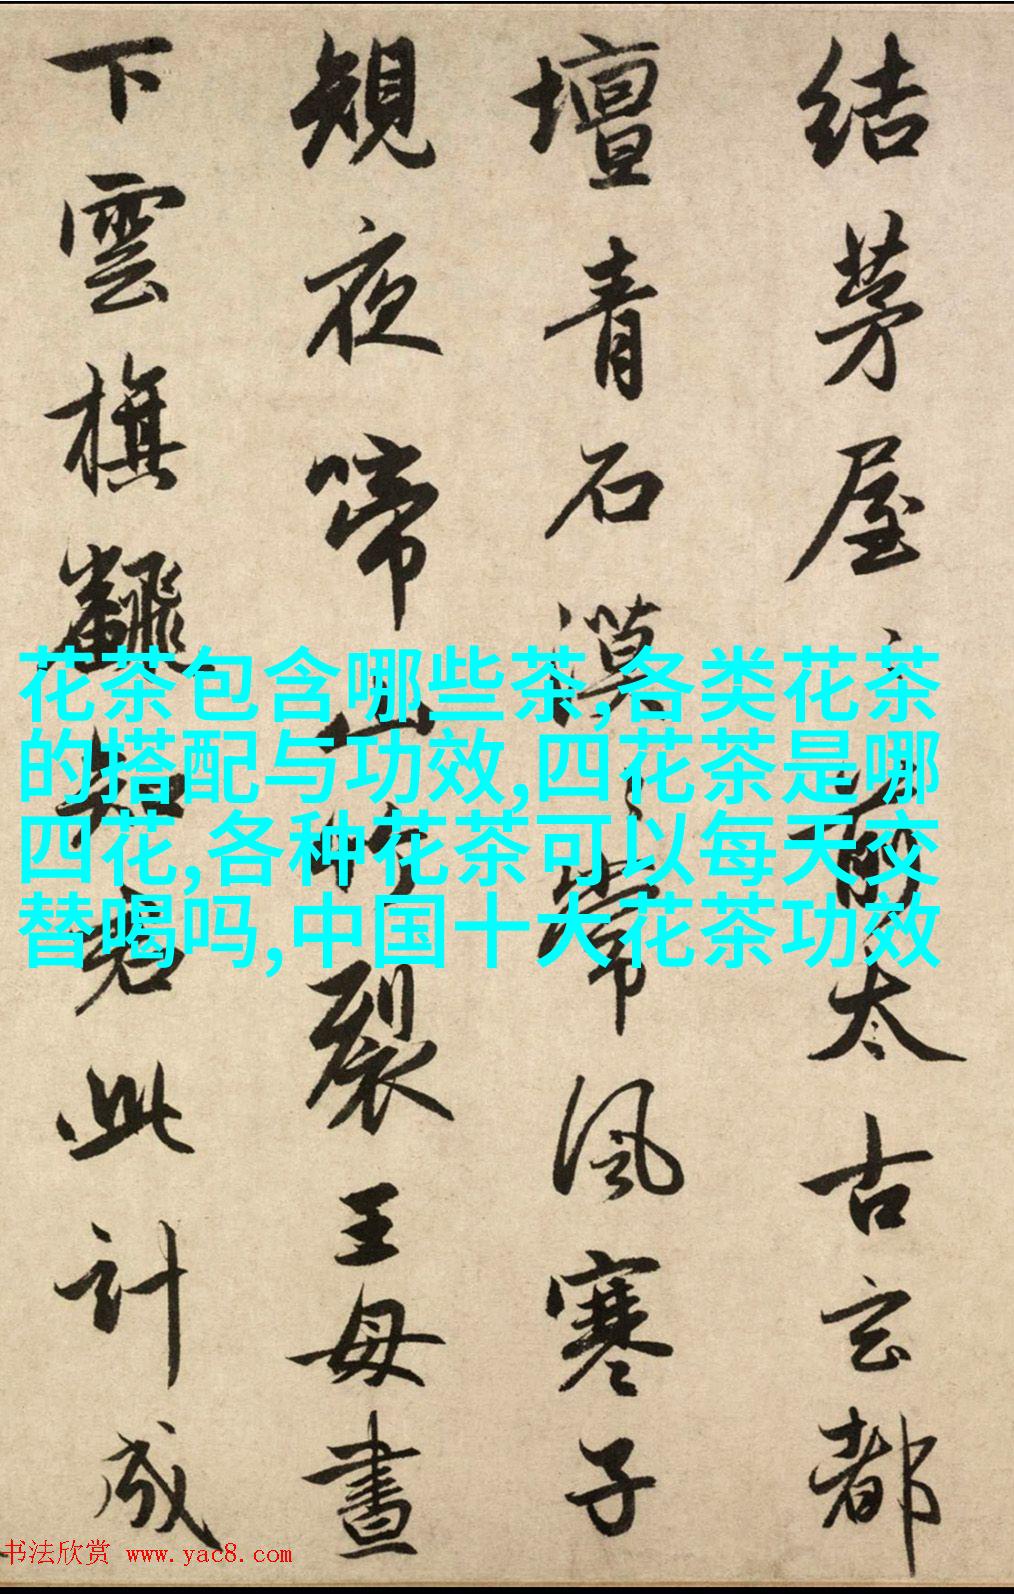 結茅屋〻前太古玄都
壇青石漠〻常風寒子
規夜啼山竹裂王母晝
下雲旗飜知君此計成
花茶包含哪些茶,各类花茶
的搭配与功效,四花茶是哪
四花,各种花茶可以每天交
替喝吗,中国十大花茶功效
书法欣赏 www.yac8.com